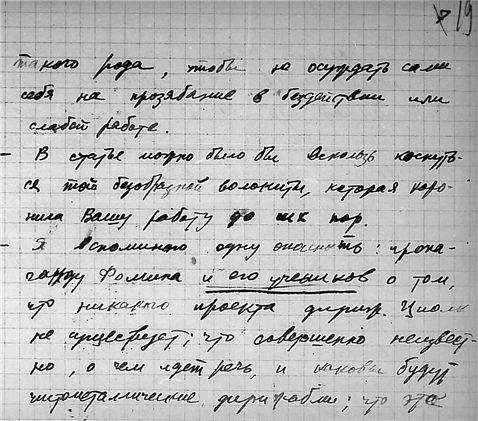 19
такого рода, чтобы не осуждать сами
себя на прозябание в бездействии или
слабой работе.
– В статье можно было бы вскользь коснуть-
ся той безобразной волокиты, которая хоро-
нила Вашу работу до сих пор.
– Я вспоминаю одну опасность: пропа-
ганду Фомина и его учеников о том,
что никакого проекта дириж. Циолк
не существует; что совершенно неизвест-
но, о чем идет речь, и каковы будут
чистометаллические дирижабли; что это